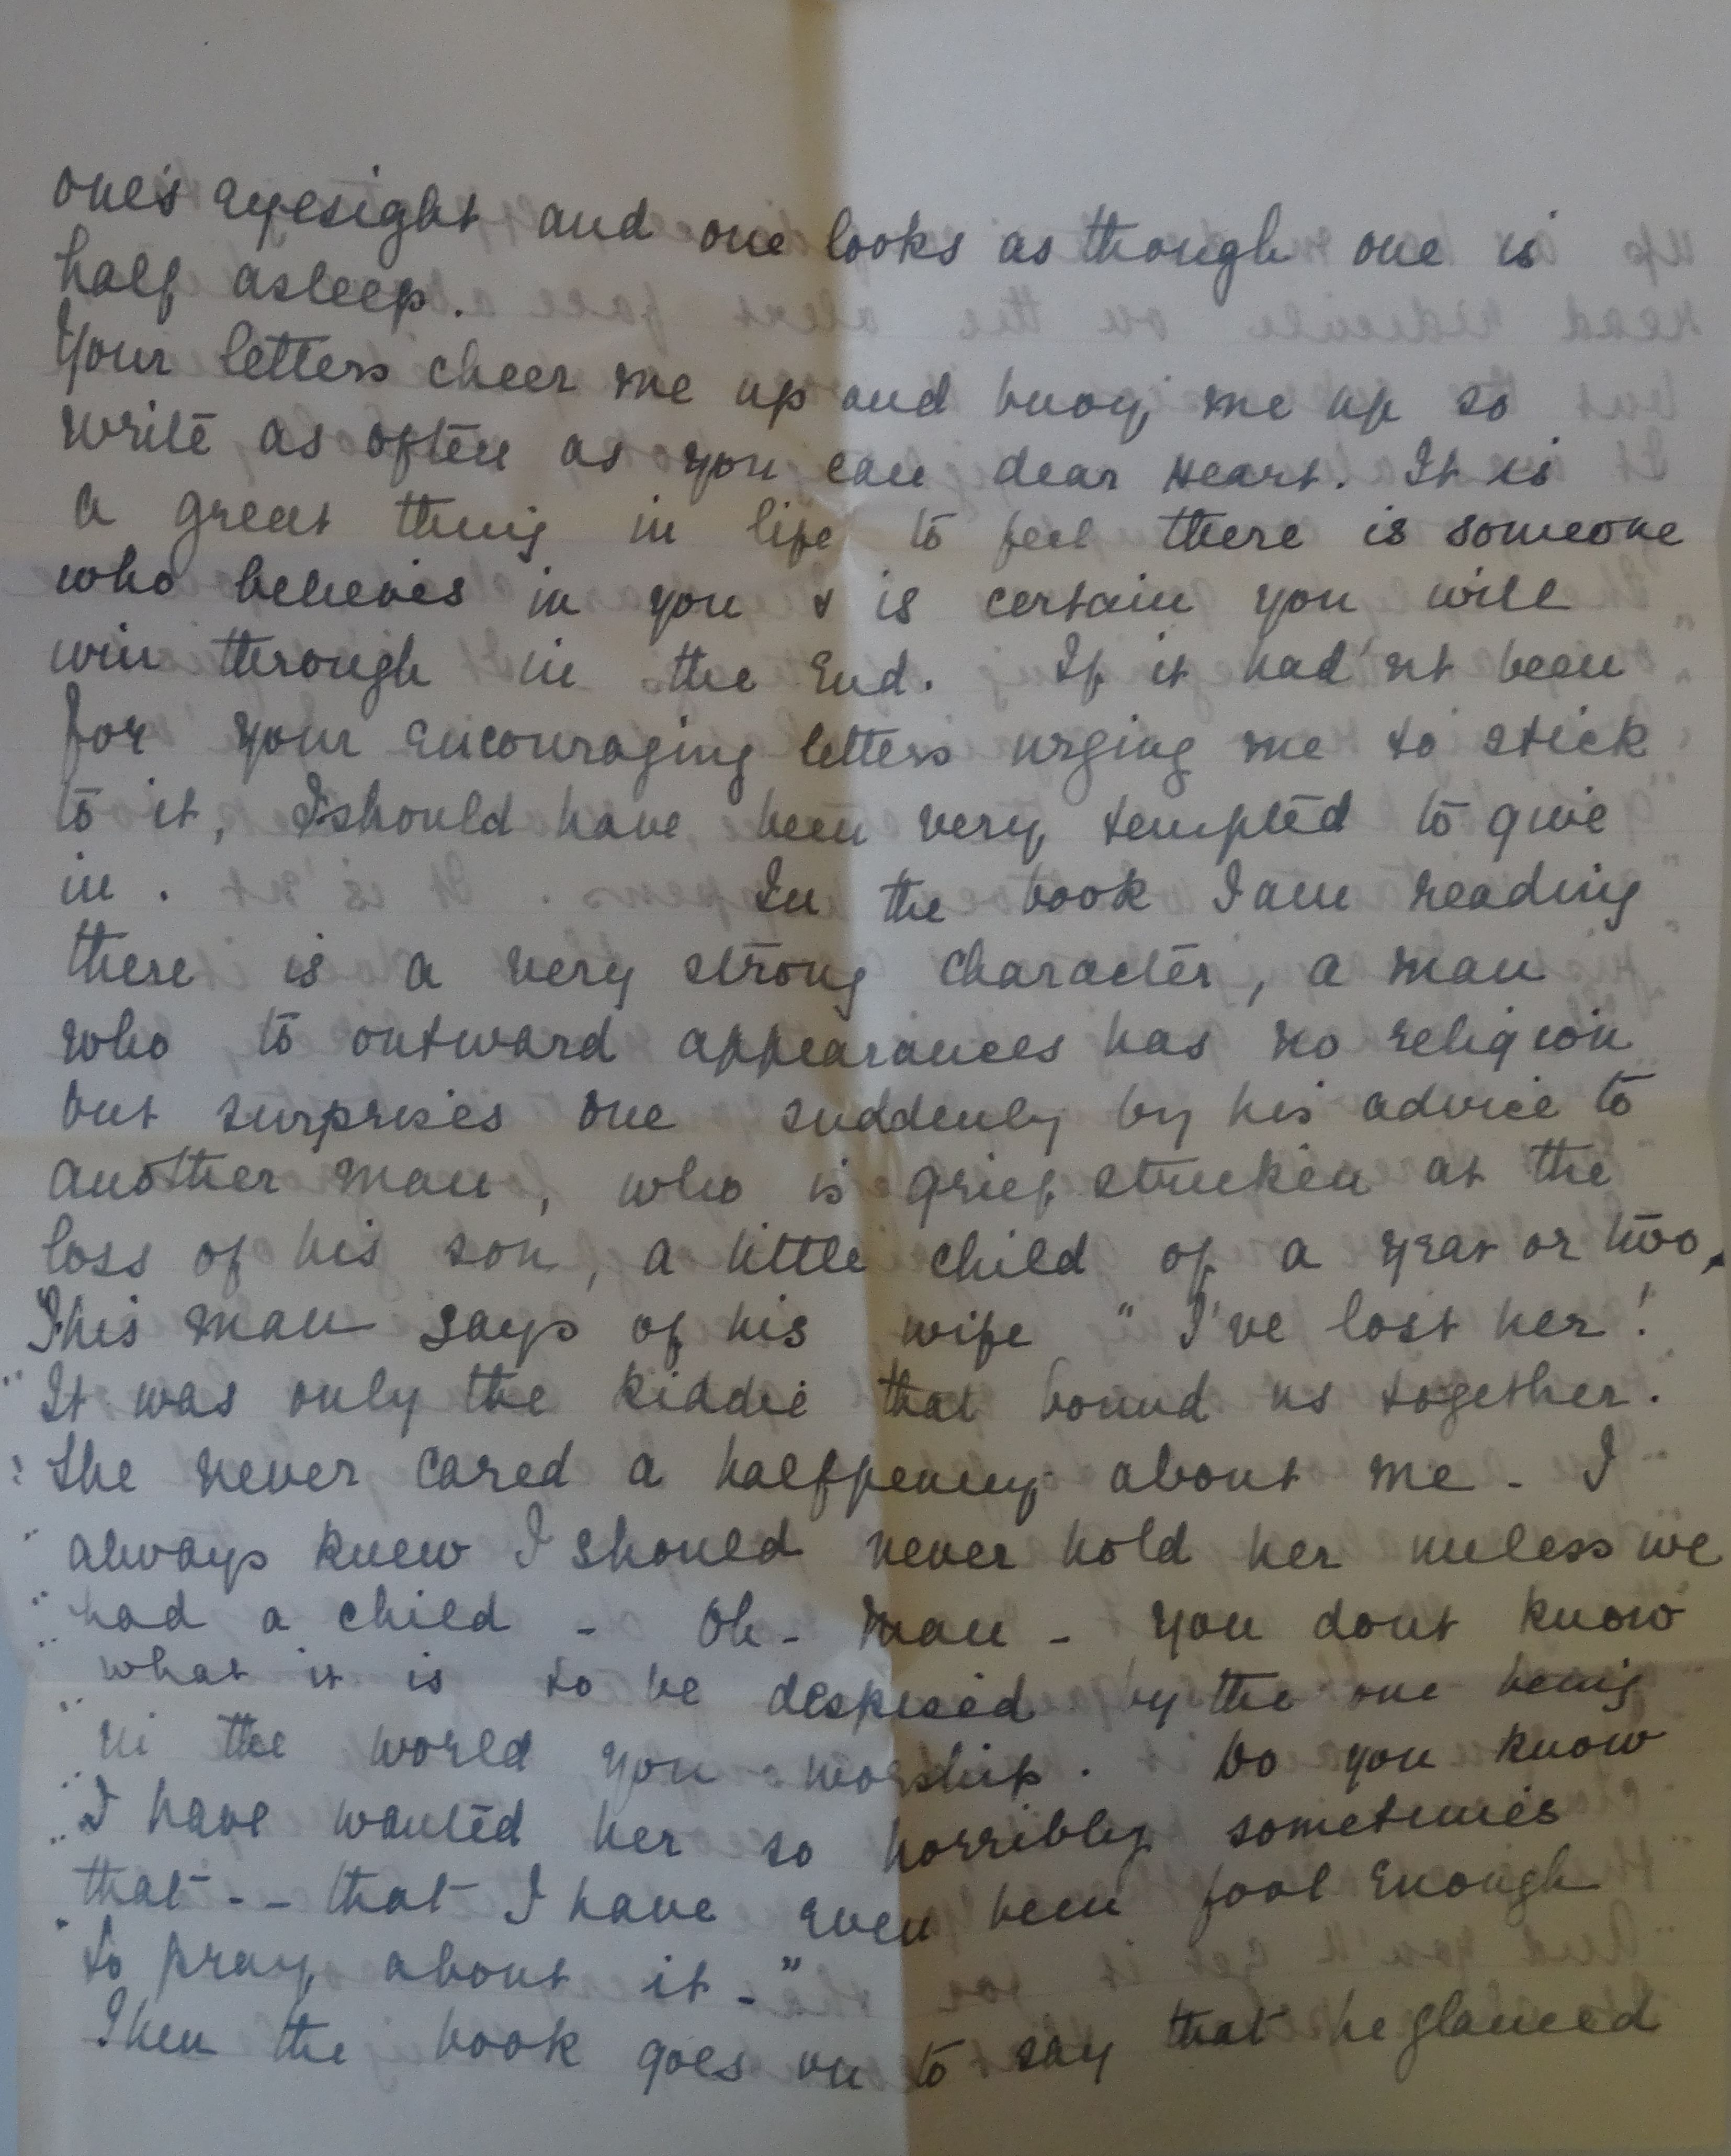 one's eyesight and one looks as though one is
half asleep.
Your letters cheer me up and buoy me up so
write as often as you can dear Heart. It is
a great thing in life to feel there is someone
who believes in you & is certain you will
win through in the End. If it had'nt been
for your encouraging letters urging me to stick
to it, I should have been very tempted to give
in. In the book I am reading
there is a very strong character, a man
who to outward appearances has no religion
but surprises one suddenly by his advice to
another man, who is grief strucken at the
loss of his son, a little child of a year or two.
This man says of his wife "I've lost her!
"It was only the kiddie that bound us together.
"She never cared a halfpenny about me - I
"always knew I should never hold her unless we
"had a child - Oh - man - you dont know
"what it is to be despised by the one being
"in the world you worship. Do you know
"I have wanted her so horribly sometimes
"that -- that I have even been fool enough
"to pray about it -"
Then the book goes on to say that he glanced